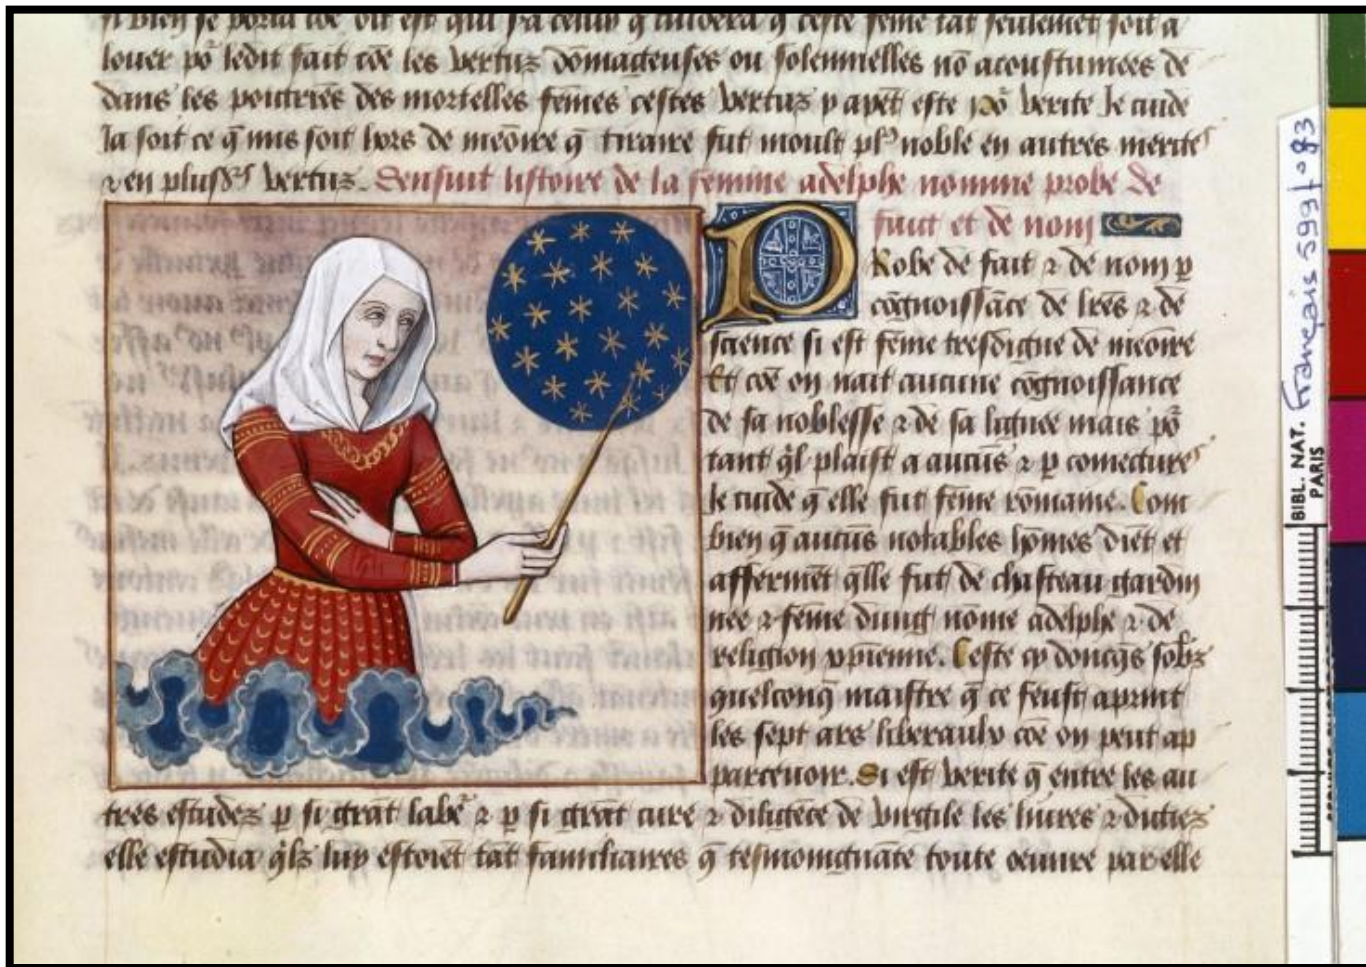 louer põ ledit fait cõe les vertuz dõmageuses ou solennelles nõ acoustumees de
dans les poictrines des mortelles fẽmes cestes vertuz y apẽt este põ verite Je cuide
Ja soit ce q̃ mis soit hors de meõire q̃ fut moult plꝰ noble en autres merites
⁊ en plusrs vertuz. Sensuit listoire de la femme adelphe nomme probe de
fait et de nom
PRobe de fait ⁊ de nom p̲
cõgnoissãce de lrẽs ⁊ de
science si est fẽme tresdigne de meõire
Et cõe on nait aucune cõgnoissance
de sa noblesse ⁊ de sa lignee mais põ
tant q̃l plaist a aucũs ⁊ p̲ coniecture
Je cuide q̃ elle fut fẽme rõmaine. Com
bien q̃ aucũs notables hõmes diẽt et
affermẽt q̃lle fut de chasteau gardin
nee ⁊ fẽme dung nõme adelphe ⁊ de
religion xp̃ienne. Ceste cy doncq̃s sobz
quelconq̃ maistre q̃ ce feust aprint
les sept ars liberaulx cõe on peut ap
parcevoir. Si est verite q̃ entre les au
tres estudes p̲ si grãt labẽ ⁊ p̲ si grãt cure ⁊ diligẽce de virgile les livres ⁊ dictiez
elle estudia q̃lz luy estoiẽt tãt familiaires q̃ tesmoingnãte toute oeuvre par elle
Français 599 fº 83
BIBL. NAT.
PARIS